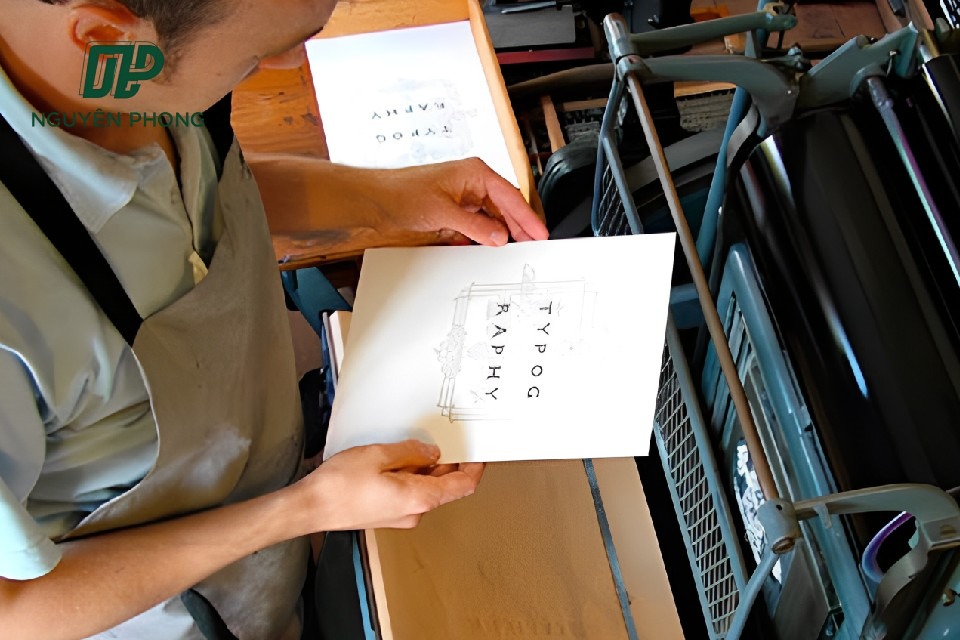 NGUYÊN PHONG
TYPOG
RAPHY
TYPOG
RAPHY